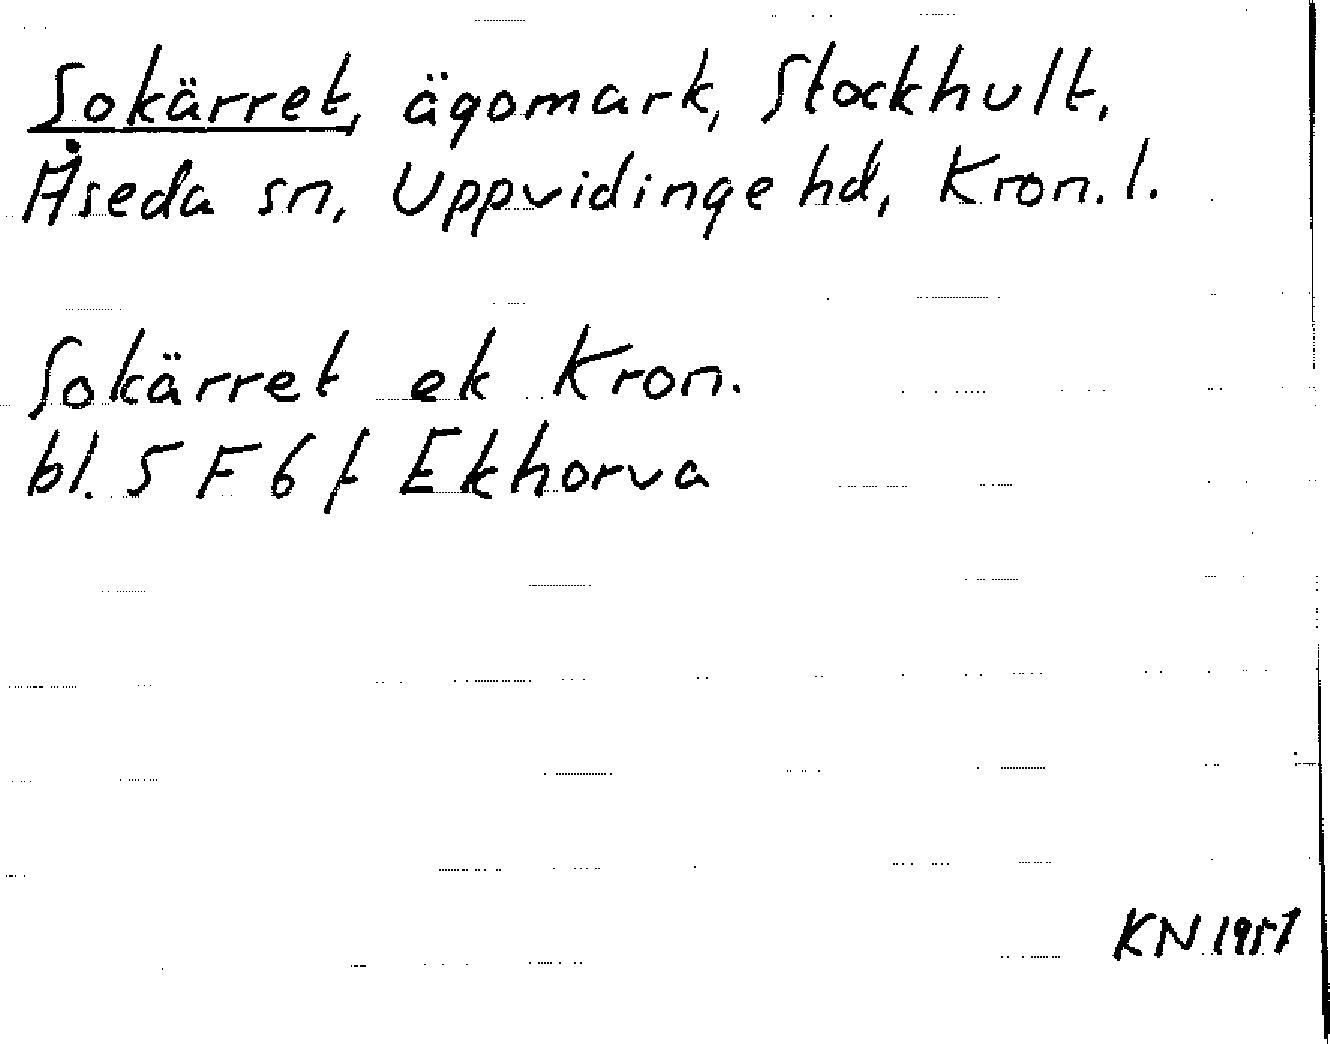 Sokärret, ägomark, Stockhult,
Åseda sn, Uppvidinge hd, Kron. l.
Sokärret ek Kron.
bl. 5 F 6 f Ekhorva
KN 1957